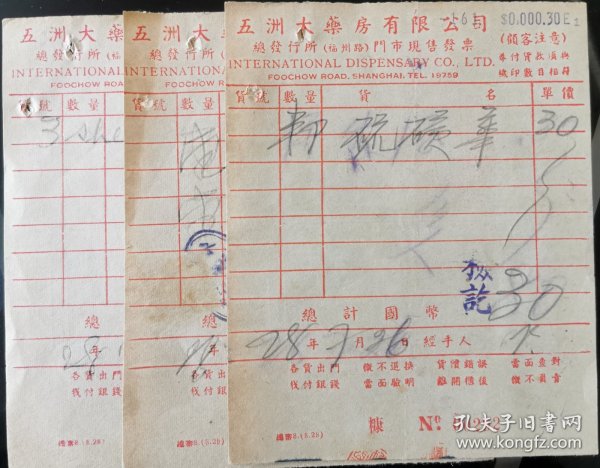 五洲大藥
總發行所 (福
INTERNATIONAL
FOOCHOW ROA
貨號 數量
3
總
28 年
各貨出門
找付銀錢
總審8.(3.28)
五洲大藥
總發行所 (福
INTERNATIONAL
FOOCHOW R
貨號 數量
總
年
各貨出門
找付銀錢
總審8.(3.28)
五洲大藥房有限公司
$0,000.30E
總發行所 (福州路) 門市現售發票
(顧客注意)
INTERNATIONAL DISPENSARY CO., LTD.
FOOCHOW ROAD, SHANGHAI. TEL. 19759
貨號 數量 貨名 單價
硫磺華 30
30
總計國幣
28 年 月 26 日 經手人
各貨出門 概不退換 貨價錯誤 當面查對
找付銀錢 當面驗明 離開櫃後 概不負責
總審8.(3.28)
糠 No
孔夫子旧书网
www.kongfz.com